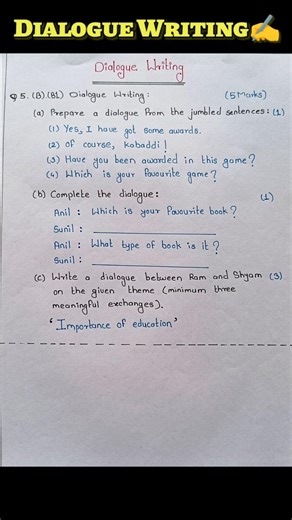 DIALOGUE WRITING✍
Dialogue Writing
Q 5. (B).(B1) Dialogue Writing: (5 Marks)
(a) Prepare a dialogue from the jumbled sentences: (1)
(1) Yes, I have got some awards.
(2) Of course, kabaddi!
(3) Have you been awarded in this game?
(4) Which is your favourite game?
(b) Complete the dialogue: (1)
Anil : Which is your favourite book?
Sunil : ____________________
Anil : What type of book is it?
Sunil : ____________________
(c) Write a dialogue between Ram and Shyam (3)
on the given theme (minimum three
meaningful exchanges).
'Importance of education'